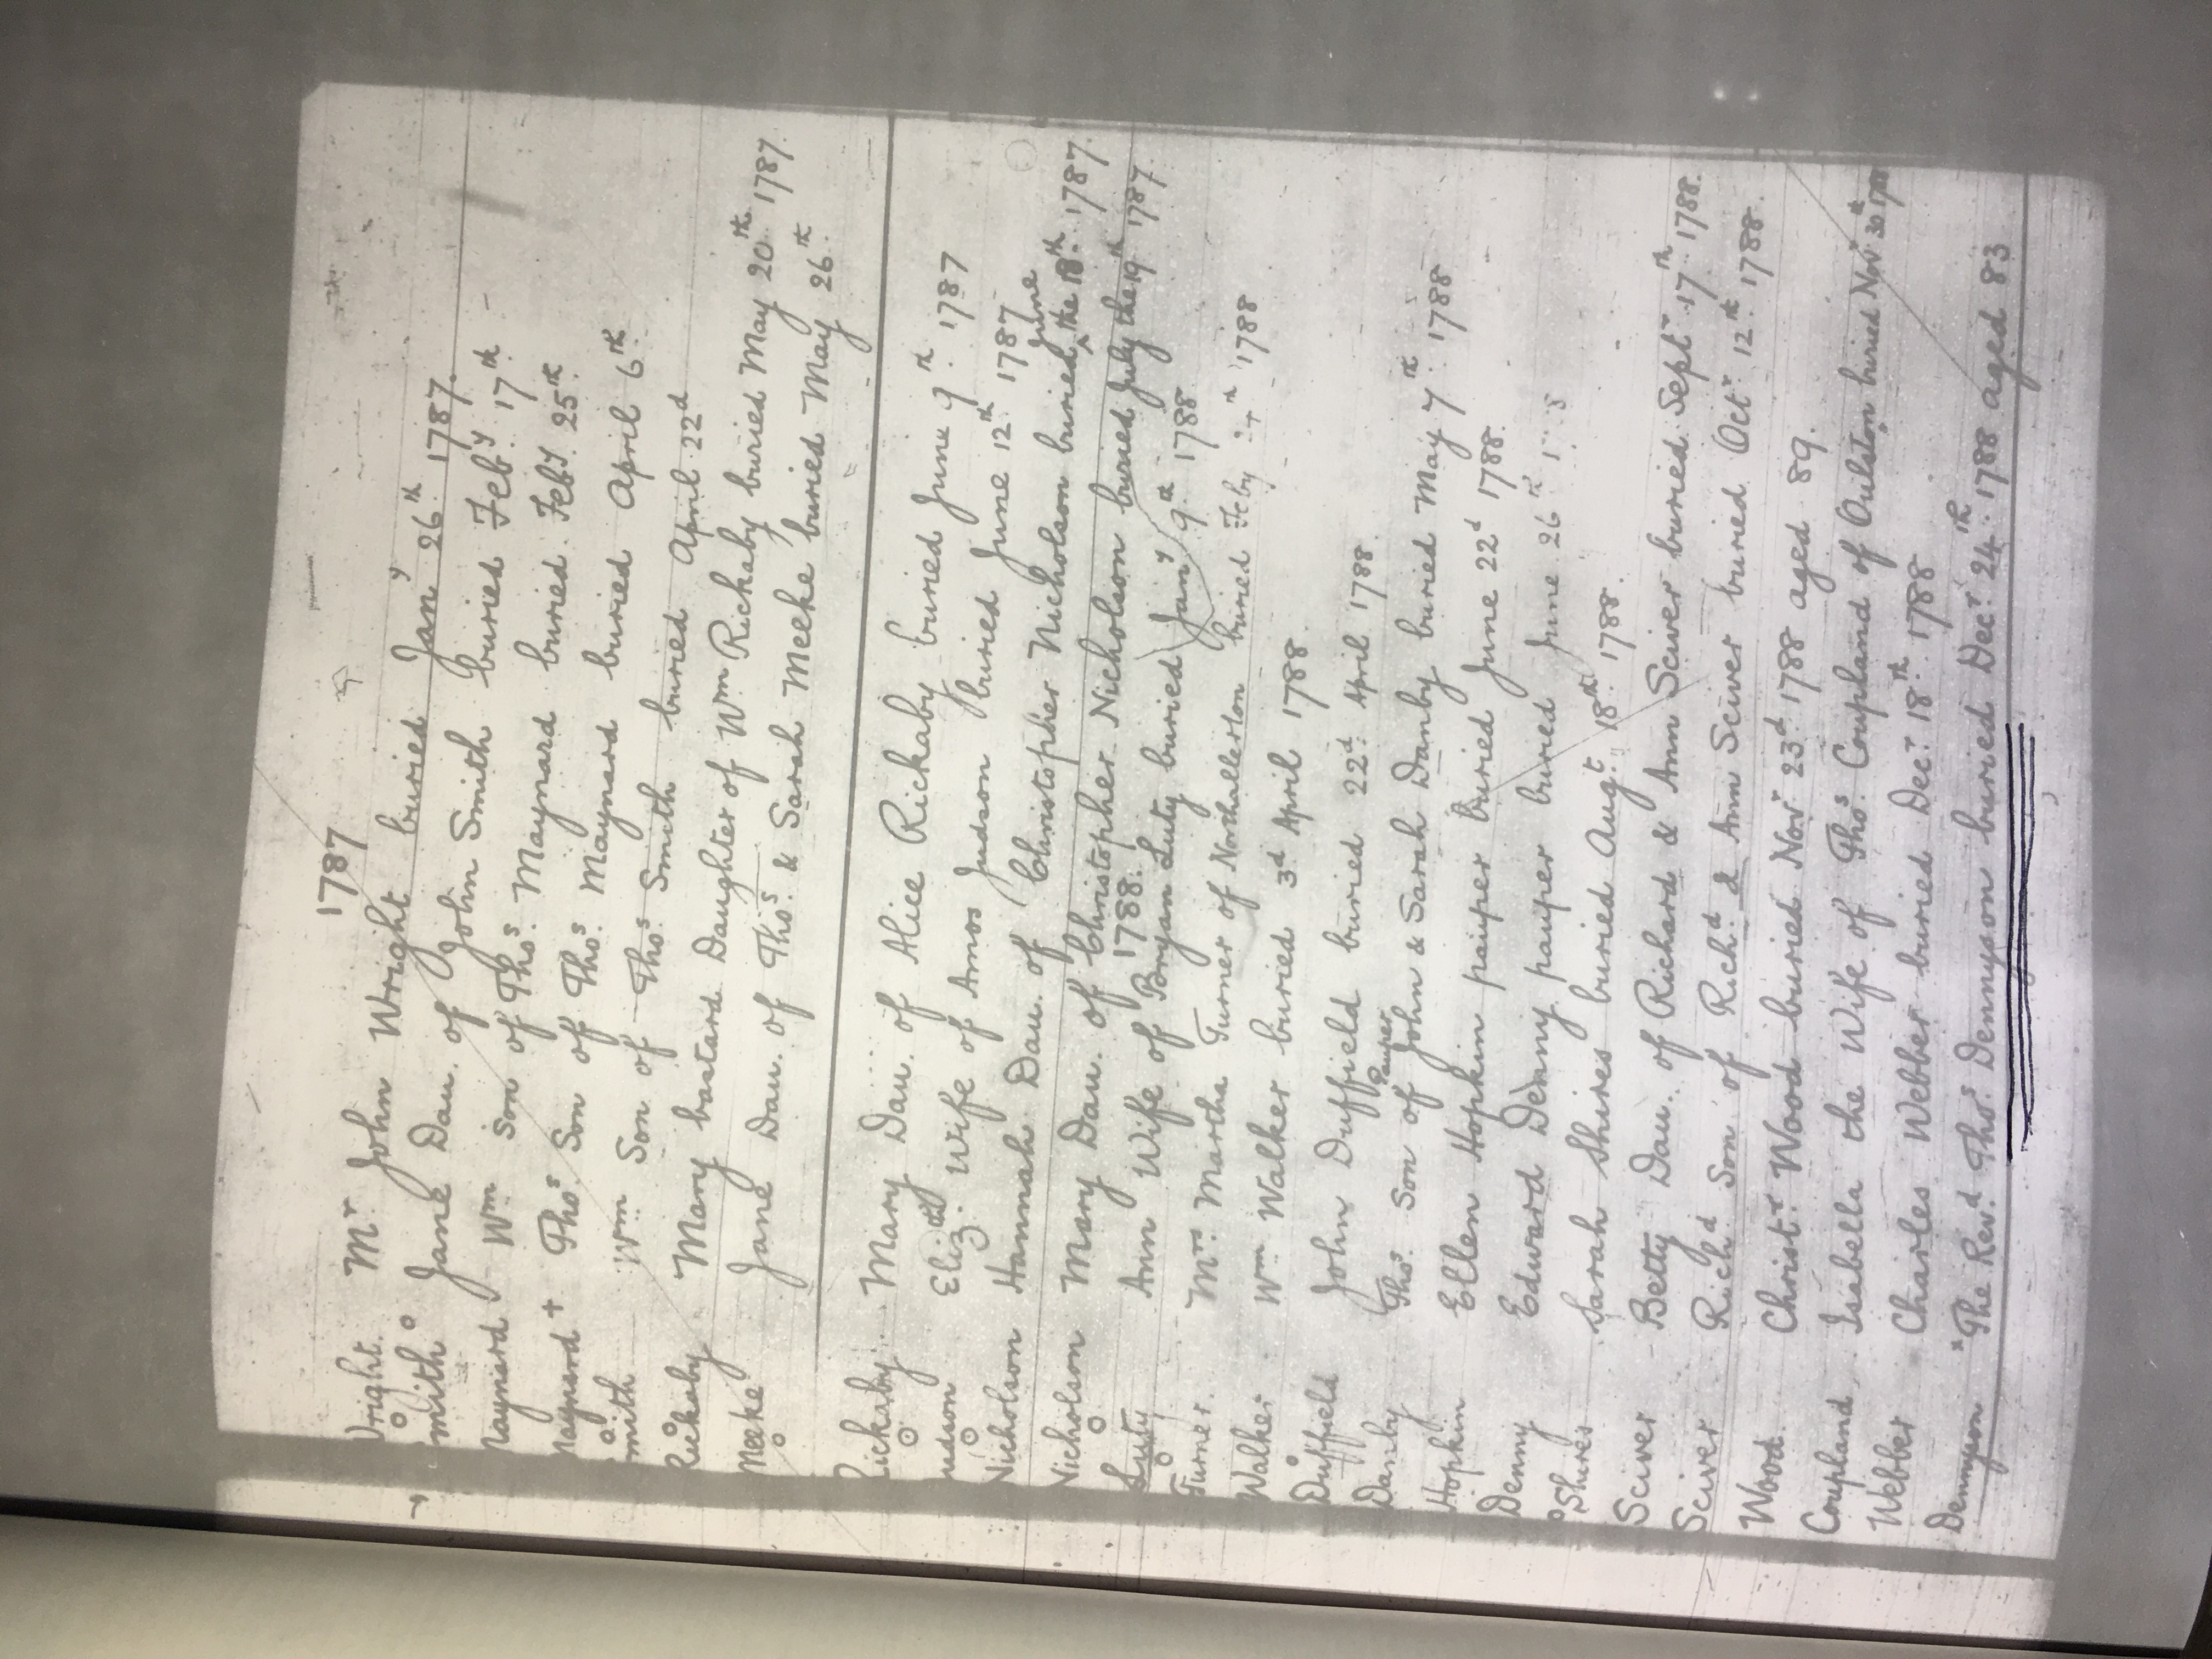 1787
Wright. Mr John Wright buried Jany 26th 1787.
Smith Jane Dau. of John Smith buried Feby. 17th
Maynard Wm Son of Thos. Maynard buried Feby. 25th
Maynard + Thos Son of Thos. Maynard buried April 6th.
Smith Wm Son of Thos Smith buried April 22d
Rickaby Mary bastard Daughter of Wm Rickaby buried May 20th. 1787.
Meeke Jane Dau. of Thos. & Sarah Meeke buried May 26th.
Rickaby. Mary Dau. of Alice Rickaby buried June 9th. 1787
Judson Elizth. Wife of Amos Judson buried June 12th 1787
Nicholson Hannah Dau. of Christopher Nicholson buried ^June the 18th. 1787.
Nicholson Mary Dau. of Christopher Nicholson buried July the 19th 1787.
1788.
Luty Ann Wife of Bryan Luty buried Jany 9th. 1788.
Turner. Mrs Martha Turner of Northallerton buried Feby 1788
Walker Wm Walker buried 3d April 1788
Duffield John Duffield buried 22d. April 1788.
Danby Thos. Son of Pauper John & Sarah Danby buried May 7th. 1788
Hopkin Ellen Hopkin pauper buried June 22d 1788.
Denny Edward Denny pauper buried June 26th
Shires Sarah Shires buried Augt. 18th. 1788.
Sciver Betty Dau. of Richard & Ann Sciver buried Septr 17th. 1788.
Sciver Richd Son of Richd. & Ann Sciver buried Octr. 12th. 1788.
Wood. Christr. Wood buried Novr 23d. 1788 aged 89.
Coupland Isabella the Wife of Thos. Coupland of Oulston buried Novr 30th 1788
Webber Charles Webber buried Decr. 18th. 1788
Dennyson x The Revd. Thos. Dennyson buried Decr. 24th. 1788 aged 83